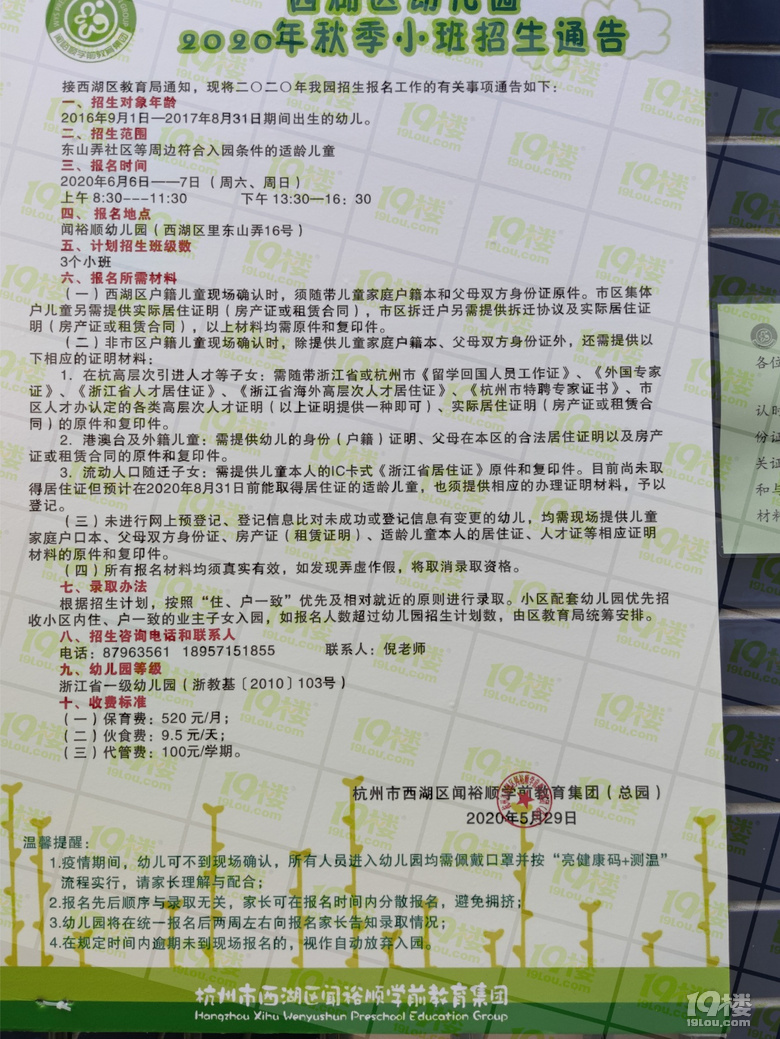 西湖区幼儿园
2020年秋季小班招生通告
接西湖区教育局通知，现将二〇二〇年我园招生报名工作的有关事项通告如下：
一、招生对象年龄
2016年9月1日—2017年8月31日期间出生的幼儿。
二、招生范围
东山弄社区等周边符合入园条件的适龄儿童
三、报名时间
2020年6月6日——7日（周六、周日）
上午 8:30---11:30 下午 13:30—16：30
四、报名地点
闻裕顺幼儿园（西湖区里东山弄16号）
五、计划招生班级数
3个小班
六、报名所需材料
（一）西湖区户籍儿童现场确认时，须随带儿童家庭户籍本和父母双方身份证原件。市区集体
户儿童另需提供实际居住证明（房产证或租赁合同），市区拆迁户另需提供拆迁协议及实际居住证
明（房产证或租赁合同），以上材料均需原件和复印件。
（二）非市区户籍儿童现场确认时，除提供儿童家庭户籍本、父母双方身份证外，还需提供以
下相应的证明材料：
1．在杭高层次引进人才等子女：需随带浙江省或杭州市《留学回国人员工作证》、《外国专家
证》、《浙江省人才居住证》、《浙江省海外高层次人才居住证》、《杭州市特聘专家证书》、市
区人才办认定的各类高层次人才证明（以上证明提供一种即可）、实际居住证明（房产证或租赁合
同）的原件和复印件。
2．港澳台及外籍儿童：需提供幼儿的身份（户籍）证明、父母在本区的合法居住证明以及房产
证或租赁合同的原件和复印件。
3．流动人口随迁子女：需提供儿童本人的IC卡式《浙江省居住证》原件和复印件。目前尚未取
得居住证但预计在2020年8月31日前能取得居住证的适龄儿童，也须提供相应的办理证明材料，予以
登记。
（三）未进行网上预登记、登记信息比对未成功或登记信息有变更的幼儿，均需现场提供儿童
家庭户口本、父母双方身份证、房产证（租赁证明）、适龄儿童本人的居住证、人才证等相应证明
材料的原件和复印件。
（四）所有报名材料均须真实有效，如发现弄虚作假，将取消录取资格。
七、录取办法
根据招生计划，按照“住、户一致”优先及相对就近的原则进行录取。小区配套幼儿园优先招
收小区内住、户一致的业主子女入园，如报名人数超过幼儿园招生计划数，由区教育局统筹安排。
八、招生咨询电话和联系人
电话：87963561 18957151855 联系人：倪老师
九、幼儿园等级
浙江省一级幼儿园（浙教基〔2010〕103号）
十、收费标准
（一）保育费：520 元/月；
（二）伙食费：9.5 元/天；
（三）代管费：100元/学期。
杭州市西湖区闻裕顺学前教育集团（总园）
2020年5月29日
温馨提醒：
1.疫情期间，幼儿可不到现场确认，所有人员进入幼儿园均需佩戴口罩并按“亮健康码+测温”
流程实行，请家长理解与配合；
2.报名先后顺序与录取无关，家长可在报名时间内分散报名，避免拥挤；
3.幼儿园将在统一报名后两周左右向报名家长告知录取情况；
4.在规定时间内逾期未到现场报名的，视作自动放弃入园。
杭州市西湖区闻裕顺学前教育集团
Hangzhou Xihu Wenyushun Preschool Education Group
各位
认时
份证
关证
和与
材料
19楼
19lou.com